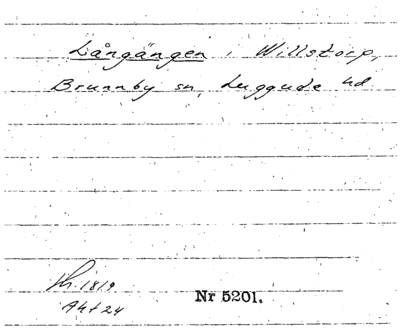 Långängen i Willstorp,
Brunnby sn, Luggude hd
1819
Akt 24
Nr 5201.